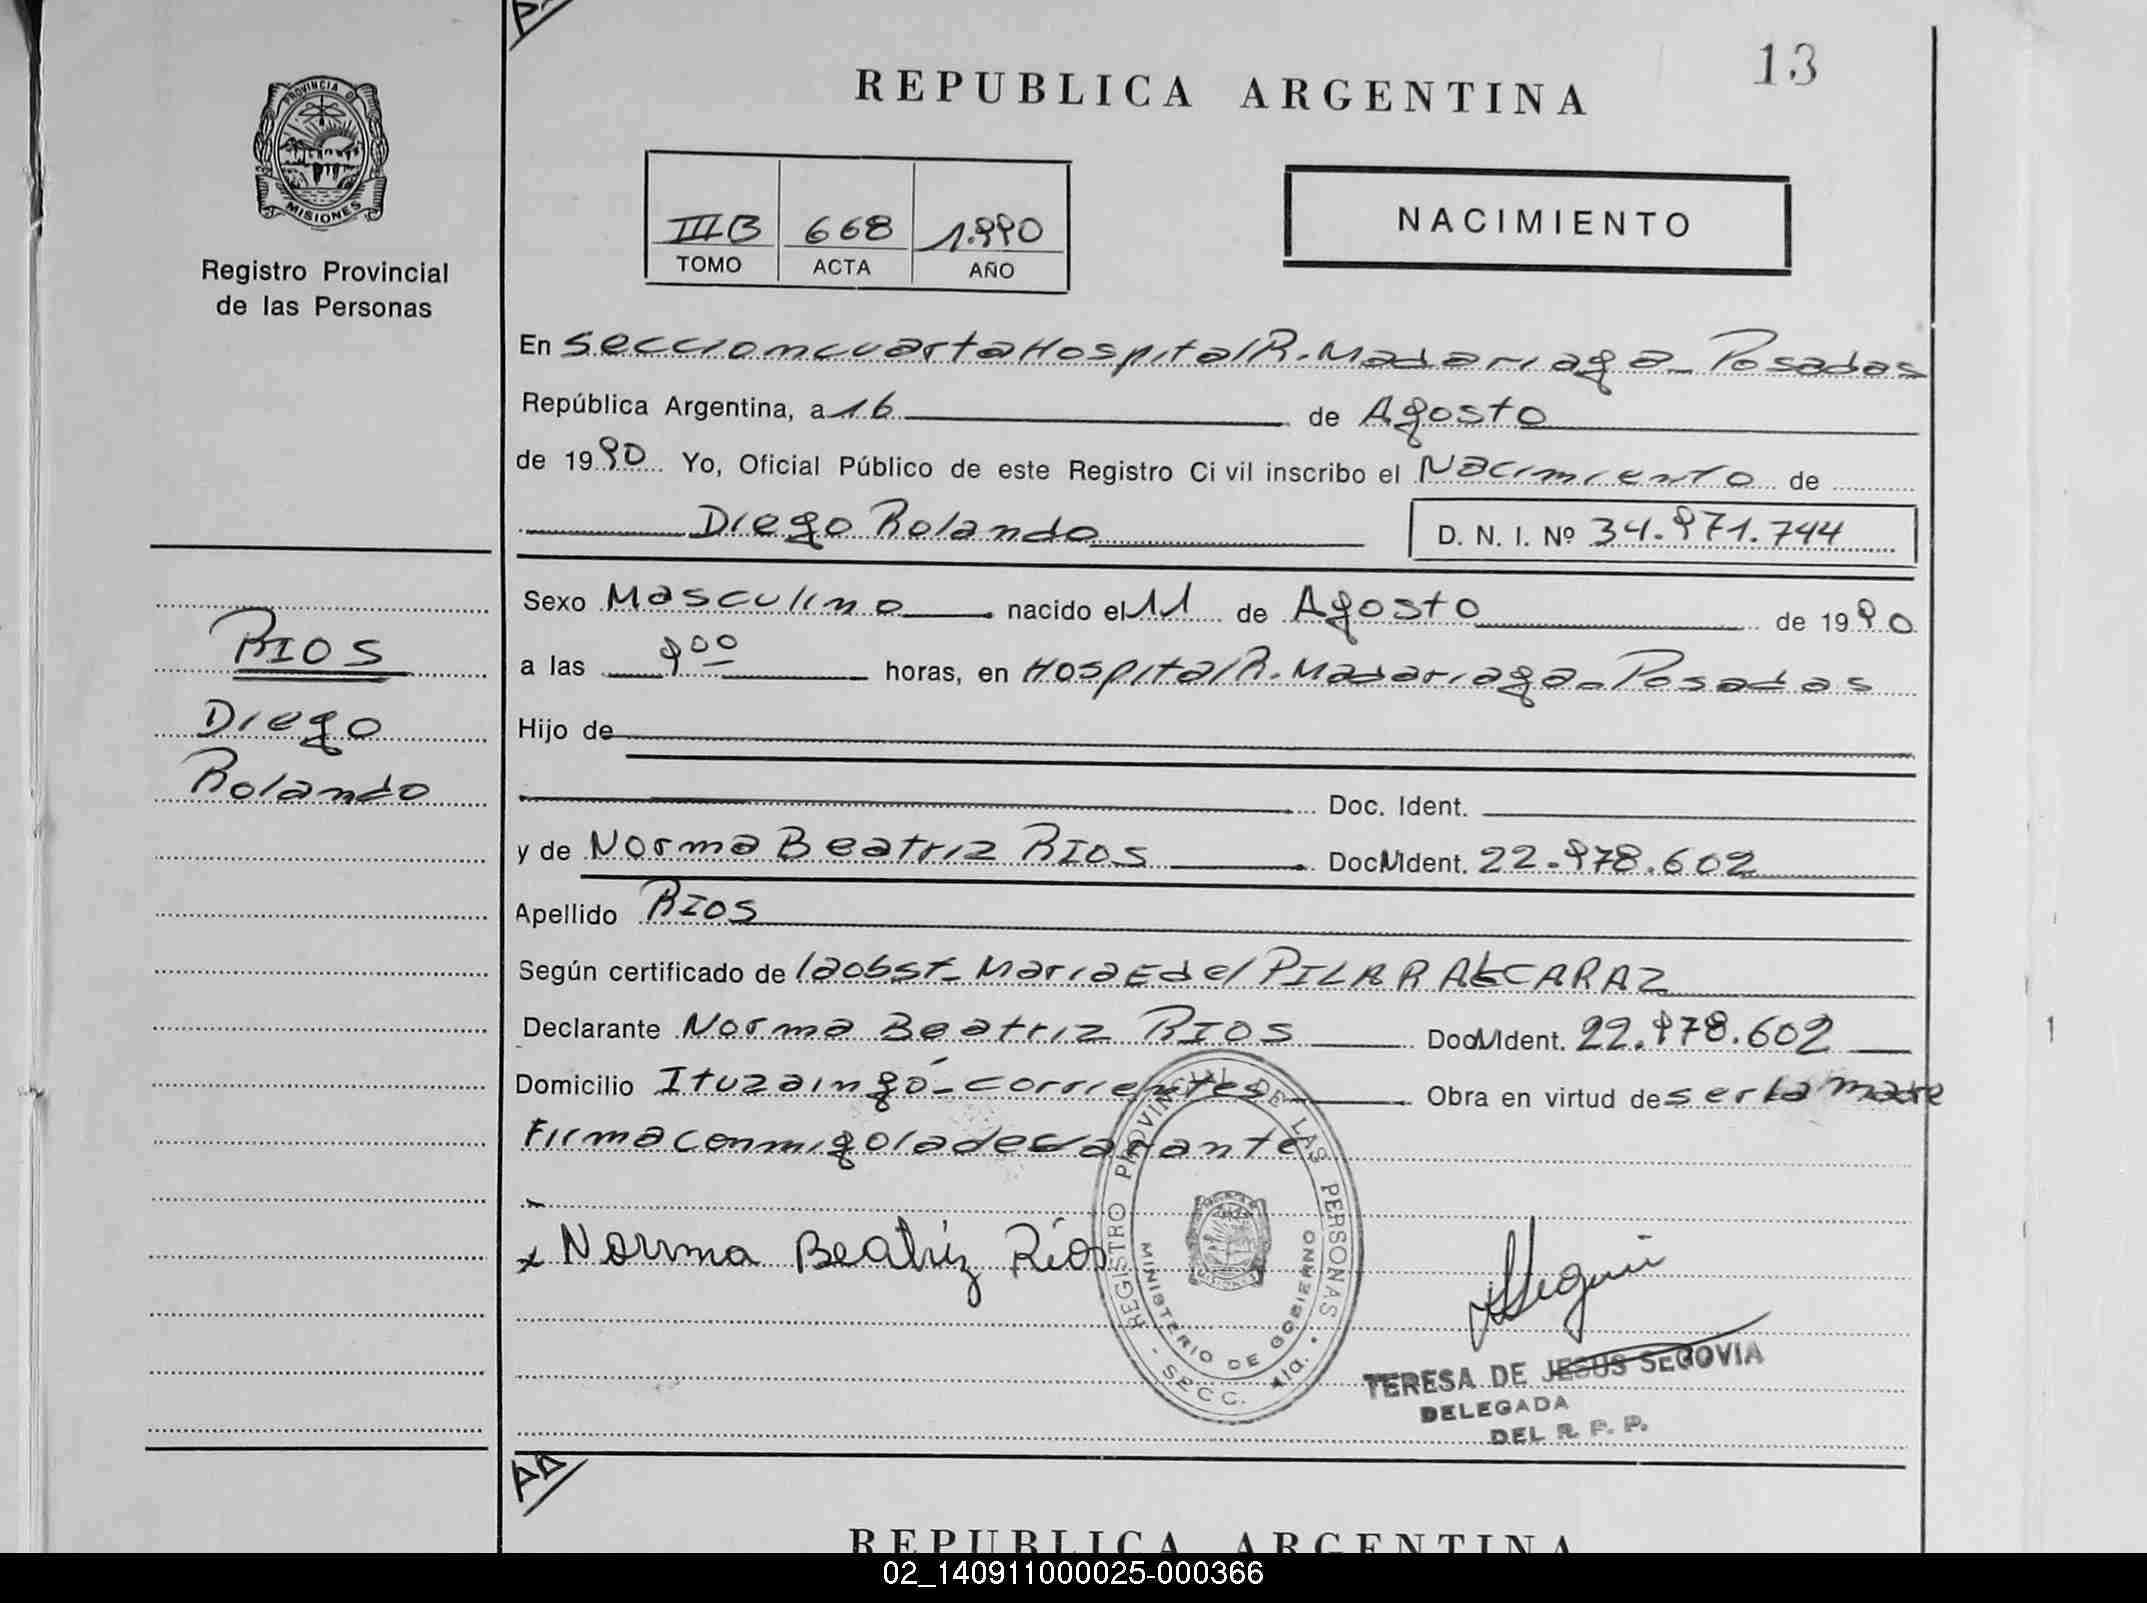 13
REPUBLICA ARGENTINA
PROVINCIA DE
MISIONES
Registro Provincial
de las Personas
III B 668 1.990
TOMO ACTA AÑO
NACIMIENTO
En Seccion cuarta Hospital R. Madariaga - Posadas
República Argentina, a 16 de Agosto
de 1990 Yo, Oficial Público de este Registro Civil inscribo el Nacimiento de
Diego Rolando D. N. I. Nº 34.971.744
Sexo Masculino nacido el 11 de Agosto de 1990
RIOS
a las 9 00 horas, en Hospital R. Madariaga - Posadas
Diego
Hijo de
Rolando
Doc. Ident.
y de Norma Beatriz RIOS Doc. Ident. 22.978.602
Apellido RIOS
Según certificado de la obst. Maria E del PILAR ALCARAZ
Declarante Norma Beatriz RIOS Doc. Ident. 22.978.602
Domicilio Ituzaingó - Corrientes Obra en virtud de ser la madre
Firma conmigo la declarante
x Norma Beatriz Ríos
REGISTRO PROVINCIAL DE LAS PERSONAS
MINISTERIO DE GOBIERNO
SECC. 4ta.
TERESA DE JESUS SEGOVIA
DELEGADA
DEL R. P. P.
REPUBLICA ARGENTINA
02_140911000025-000366